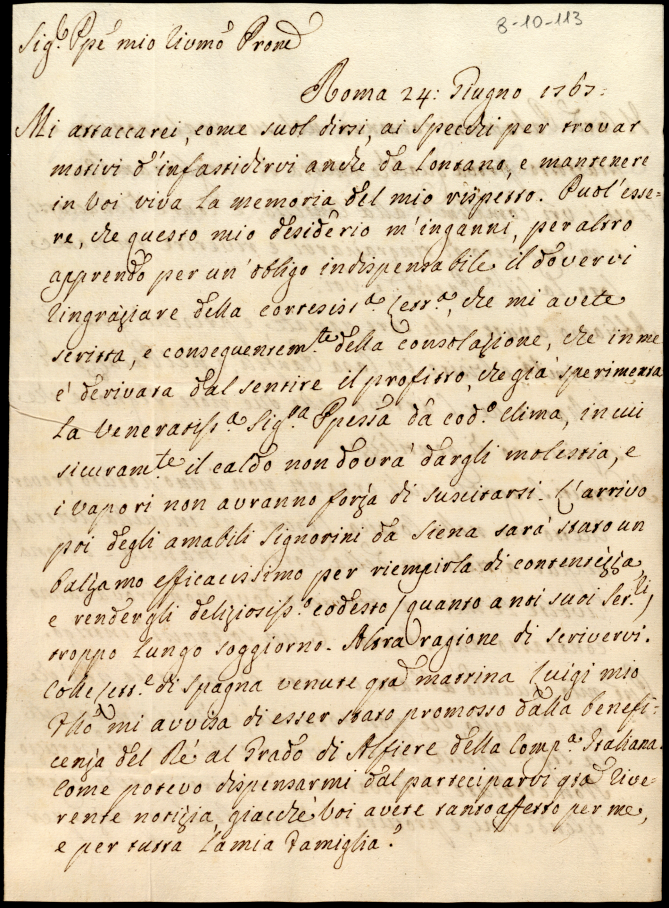 8-10-113
Sig.r Ppe mio Rivmo Prone
Roma 24: Giugno 1767:
Mi attaccarei, come suol dirsi, ai specchi per trovar
motivi d'infastidirvi anche da lontano, e mantenere
in voi viva la memoria del mio rispetto. Puol'esse=
re, che questo mio desiderio m'inganni, per altro
apprendo per un'obligo indispensabile il dovervi
ringraziare della cortesiss.a lett.a, che mi avete
scritta, e conseguentem.te della consolazione, che in me
e' derivata dal sentire il profitto, che già sperimenta
la veneratiss.a Sig.ra Ppessa da cod.o clima, in cui
sicuram.te il caldo non dovrà dargli molestia, e
i vapori non avranno forza di suscitarsi. L'arrivo
poi degli amabili Signorini da Siena sarà stato un
balzamo efficacissimo per riempirla di contentezza,
e rendergli deliziosiss.o codesto (quanto a noi suoi Ser.li)
troppo lungo soggiorno. Altra ragione di scrivervi.
Colle lett.e di Spagna venute qta mattina Luigi mio
Fllo mi avvisa di esser stato promosso dalla benefi=
cenza del Rè al Grado di Alfiere della Comp.a Italiana.
Come potevo dispensarmi dal parteciparvi qta rive=
rente notizia, giacchè voi avete tanto affetto per me,
e per tutta la mia Famiglia?